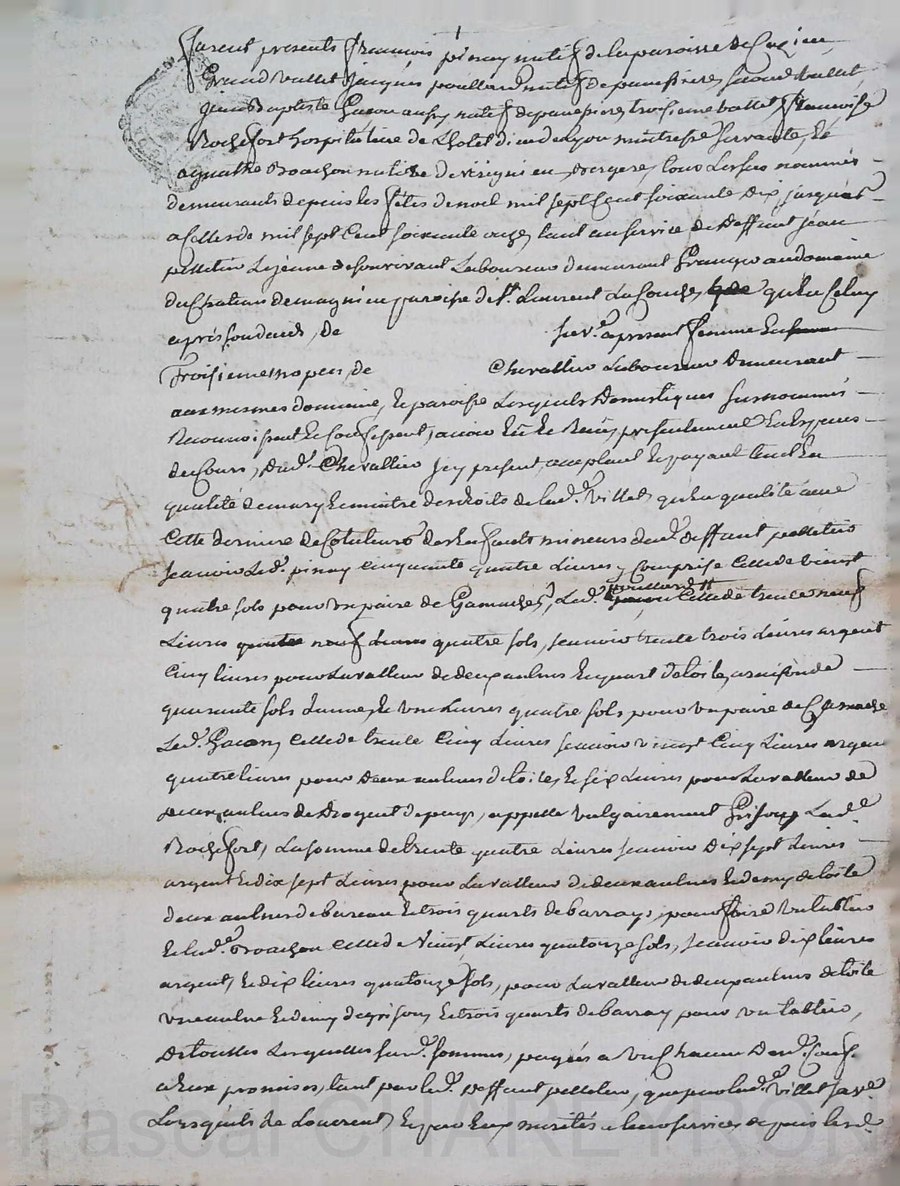 Furent presents françois pinay natif de la paroisse de
Grand vallet Jacques pouillard natif de panissieres second vallet
Jean Baptiste Gacon aussy natif de panissieres troisieme vallet francoise
Rochefort hospitaliere de Lhotel dieu de Lyon maitresse servante, et
agnathe Broachon native de en Bergere, tous Lesdits nommés
demeurants depuis les fêtes de noel mil sept Cent soixante Dix jusques
a celles de mil sept Cent soixante onze, tant au service de Deffunt jean
pelletier Lejeune de son vivant Laboureur demeurant Granger au domaine
du Chateau de magni en paroisse de St. Laurent La Conche, qu'en Celuy
apres son deces, de sa ve. a present femme
Troisieme nopces, de Chevallier Laboureur demeurant
aux mesmes domaine, et paroisse Lesquels Domestiques surnommés
Reconnoissent et confessent, avoir Eu et Receu presentement En Especes
de Cours, dud. Chevallier icy present, acceptant et payant tant En
qualité de mary et maitre des droits de lad. villet, qu'en qualité avec
Cette derniere de Cotuteurs des Enfants mineurs dud. deffunt pelletier
scavoir Led. pinay Cinquante quatre Livres y Comprise Celle de vingt
quatre sols pour une paire de Gamaches, Led. pouillard Celle de trente neuf
Livres quatre sols, scavoir trente trois Livres argent
Cinq livres pour La valleur de deux aulnes et quart de toile, a raison de
quarante sols Lune, et une Livres quatre sols pour une paire de Gamache
Led. Gacon, Celle de trente Cinq Livres scavoir vingt Cinq Livres argent
quatre livres pour Deux aulnes de toile, et six Livres pour La valleur de
deux aulnes de Droguet de pays, appellé vulgairement Grison, Lade.
Rochefort, La somme de trente quatre Livres scavoir Dix sept Livres
argent et dix sept Livres pour La valleur de deux aulnes et demy de toile
deux aulnes de bureau et trois quarts de barray, pour faire un tablier
Et lade. Broachon Celle de Vingt Livres quatorze sols, scavoir dix livres
argent, et dix livres quatorze sols, pour La valleur de deux aulnes de toile
une aulne et demy de grison, et trois quarts de barray pour un tablier,
De touttes Lesquelles susd. sommes, payées a un Chacun Desd. Conf.
a eux promises, tant par led. Deffunt pelletier, que par lade. villet sa ve.
Lors qu'ils se Louerent, et par eux merités a leur services depuis lesd.
Pascal CHAREYRON